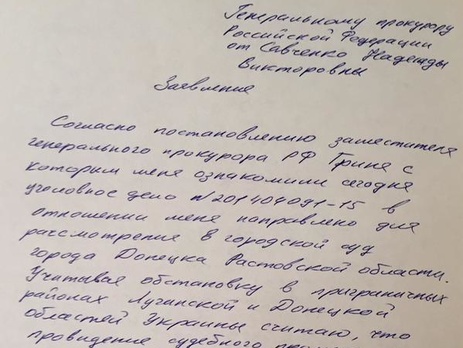 Генеральному прокурору
Российской Федерации
от Савченко Надежды
Викторовны
Заявление
Согласно постановлению заместителя
генерального прокурора РФ Гриня с
которым меня ознакомили сегодня
уголовное дело №201404091-15 в
отношении меня направлено для
рассмотрения в городской суд
города Донецка Растовской области.
Учитывая обстановку в приграничных
районах Луганской и Донецкой
областей Украины считаю, что
провидение судебного